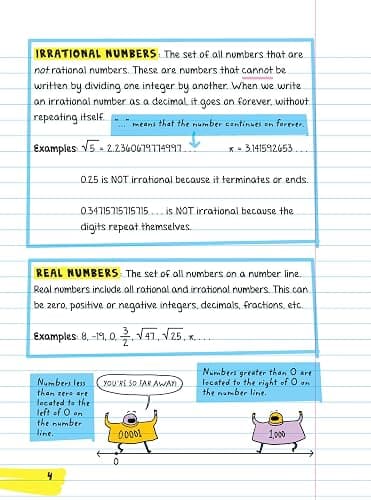 IRRATIONAL NUMBERS: The set of all numbers that are
not rational numbers. These are numbers that cannot be
written by dividing one integer by another. When we write
an irrational number as a decimal, it goes on forever, without
repeating itself.
"..." means that the number continues on forever.
Examples: √5 = 2.2360679774997... π = 3.141592653...
0.25 is NOT irrational because it terminates or ends.
0.34715715715715... is NOT irrational because the
digits repeat themselves.
REAL NUMBERS: The set of all numbers on a number line.
Real numbers include all rational and irrational numbers. This can
be zero, positive or negative integers, decimals, fractions, etc.
Examples: 8, -19, 0, 3/2, √47, √25, π, ...
Numbers less
than zero are
located to the
left of 0 on
the number
line.
YOU'RE SO FAR AWAY!
Numbers greater than 0 are
located to the right of 0 on
the number line.
0.0001
1,000
0
4